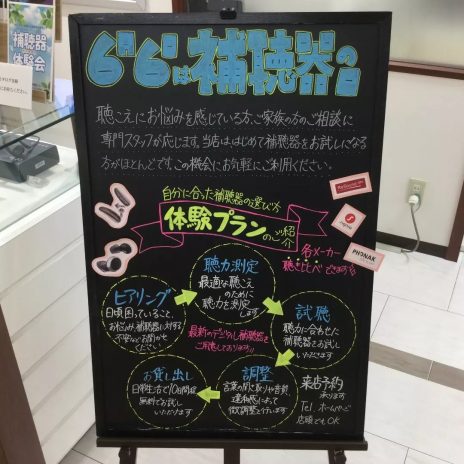 補聴器
体験会
6月6日は補聴器の日
聴こえにお悩みを感じている方、ご家族の方のご相談に
専門スタッフが応じます。当店は、はじめて補聴器をお試しになる
方がほとんどです。この機会にお気軽にご利用ください。
自分に合った補聴器の選び方
体験プランのご紹介
各メーカー
聴き比べできます
PHONAK
聴力測定
最適な聴こえ
のために
聴力を測定
します
ヒアリング
日頃困っていること、
お悩み、補聴器に対する
不安などお聞かせ
ください
試聴
聴力に合わせた
補聴器をお試し
いただきます
最新のデジタル補聴器を
ご用意しております!!
調整
言葉の聞き取りや音質、
違和感にあわせて
微調整を行います
お貸し出し
日常生活で10日間程
無料でお試し
いただけます
来店予約
承ります
Tel、ホームページ
店頭でもOK